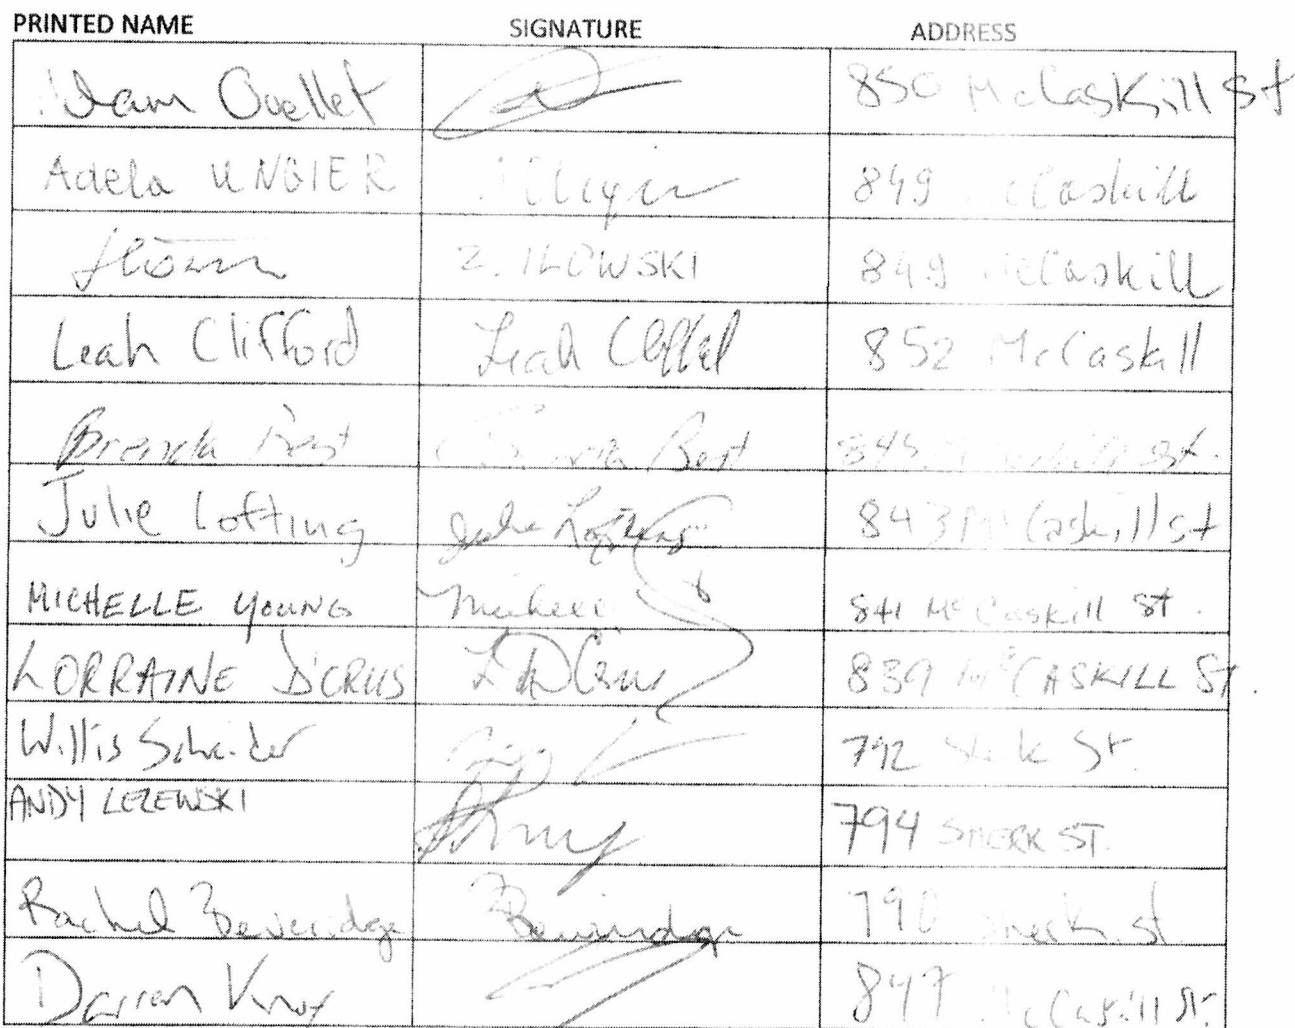 PRINTED NAME SIGNATURE ADDRESS
Ouellet 850 McCaskill St
Adela UNGIER 849 McCaskill
Z. ILOWSKI 849 McCaskill
Leah Clifford Leah 852 McCaskill
Brenda Best Best 845 St.
Julie Lofting Julie Lofting 843 McCaskill St
MICHELLE YOUNG Michelle 841 McCaskill St.
LORRAINE D'CRUS 839 McCASKILL ST.
Willis 792 Sherk St.
ANDY LEZEWSKI 794 SHERK ST.
Rachel Beveridge Beveridge 790 Sherk St.
Darren Knox 847 McCaskill St.